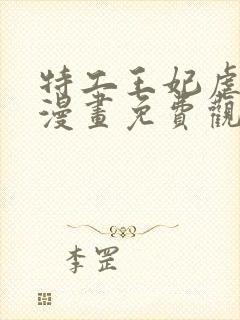 特工王妃虐
漫畫免費觀
李罡